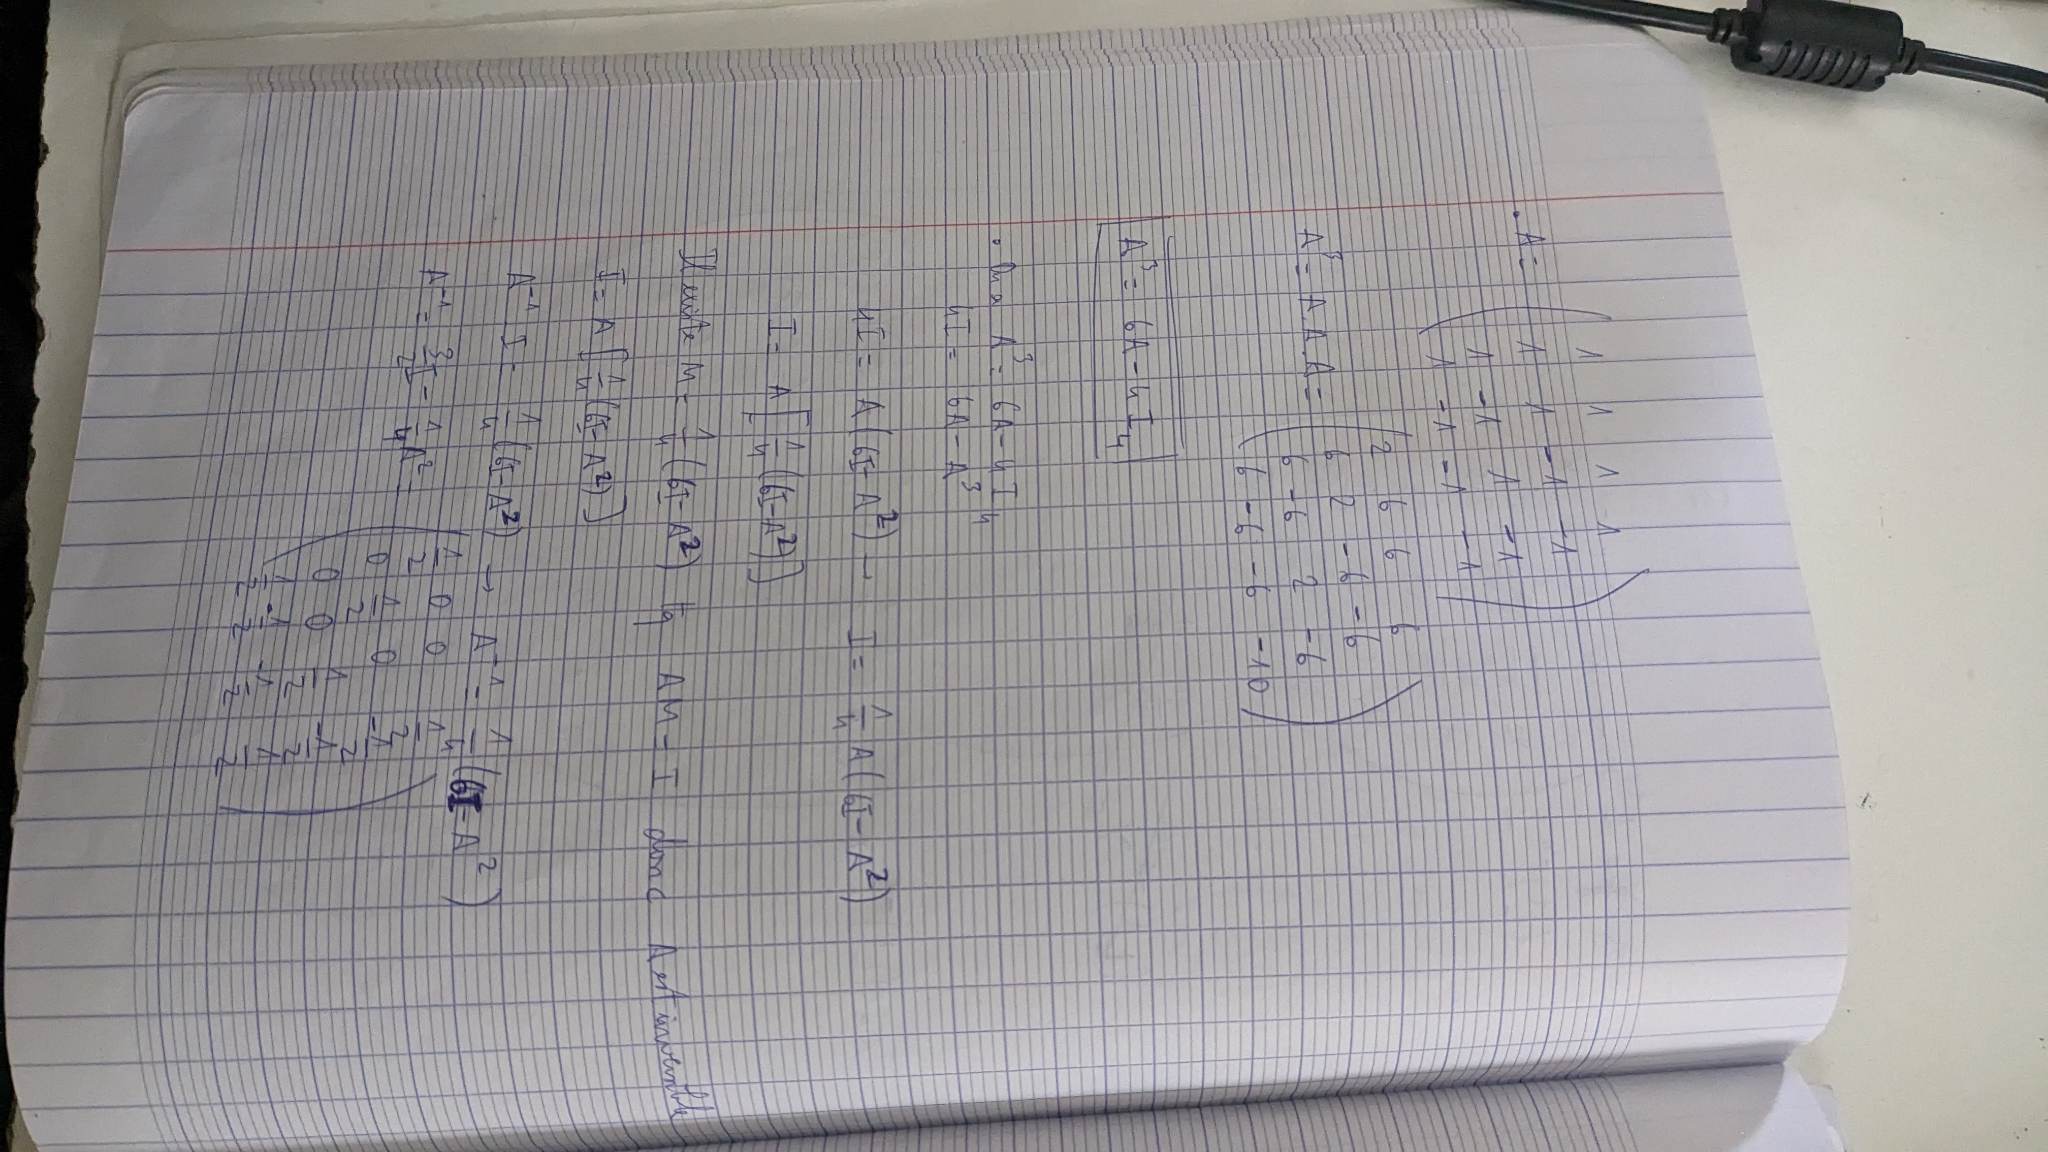 . A = ( 1 1 1 1
1 1 -1 -1
1 -1 1 -1
1 -1 -1 -1 )
A³ = A.A.A = ( 2 6 6 6
6 2 -6 -6
6 -6 2 -6
6 -6 -6 -10 )
A³ = 6A - 4I₄
. On a A³ = 6A - 4I₄
4I = 6A - A³
4I = A(6I - A²) → I = 1/4 A(6I - A²)
I = A[1/4 (6I - A²)]
Il existe M = 1/4 (6I - A²) tq AM = I donc A est inversible
I = A[1/4 (6I - A²)]
A⁻¹ I = 1/4 (6I - A²) → A⁻¹ = 1/4 (6I - A²)
A⁻¹ = 3/2 I - 1/4 A² = ( 1/2 0 0 1/2
0 1/2 0 -1/2
0 0 1/2 -1/2
1/2 -1/2 -1/2 1/2 )